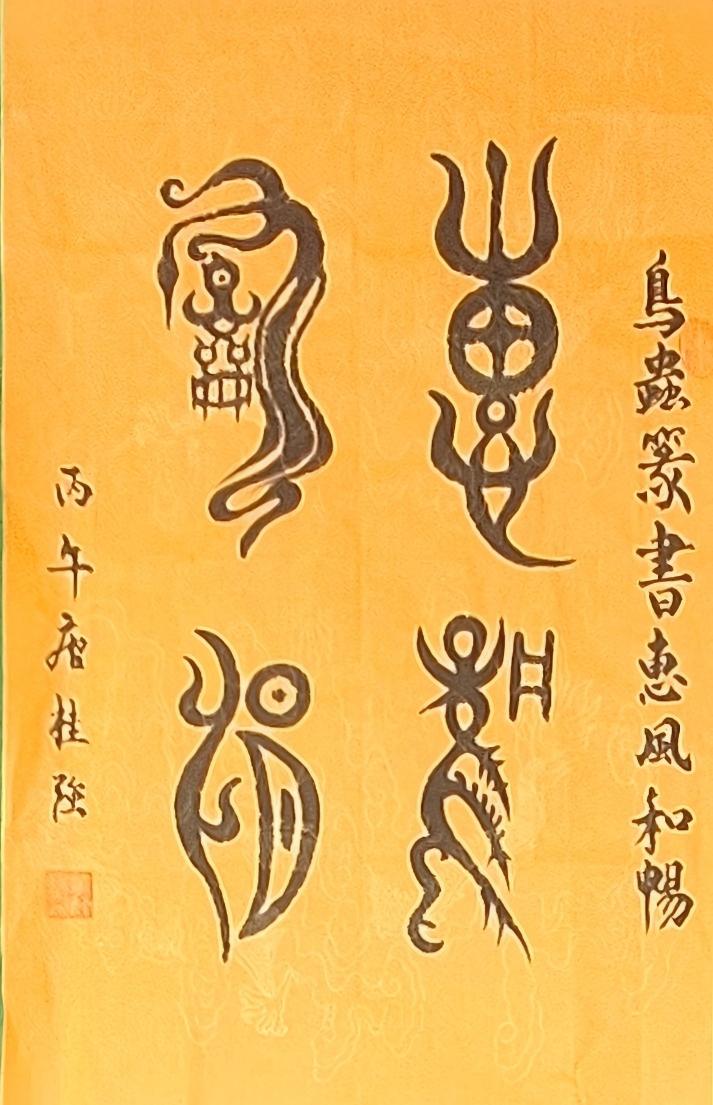 鳥蟲篆書惠風和暢
惠風
和暢
丙午唐桂強